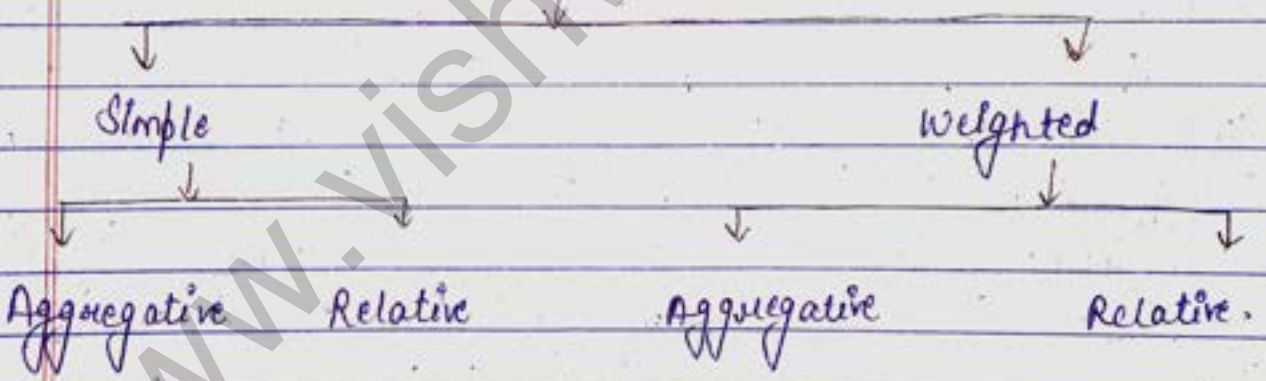 Simple Weighted
Aggregative Relative Aggregative Relative.
www.vish